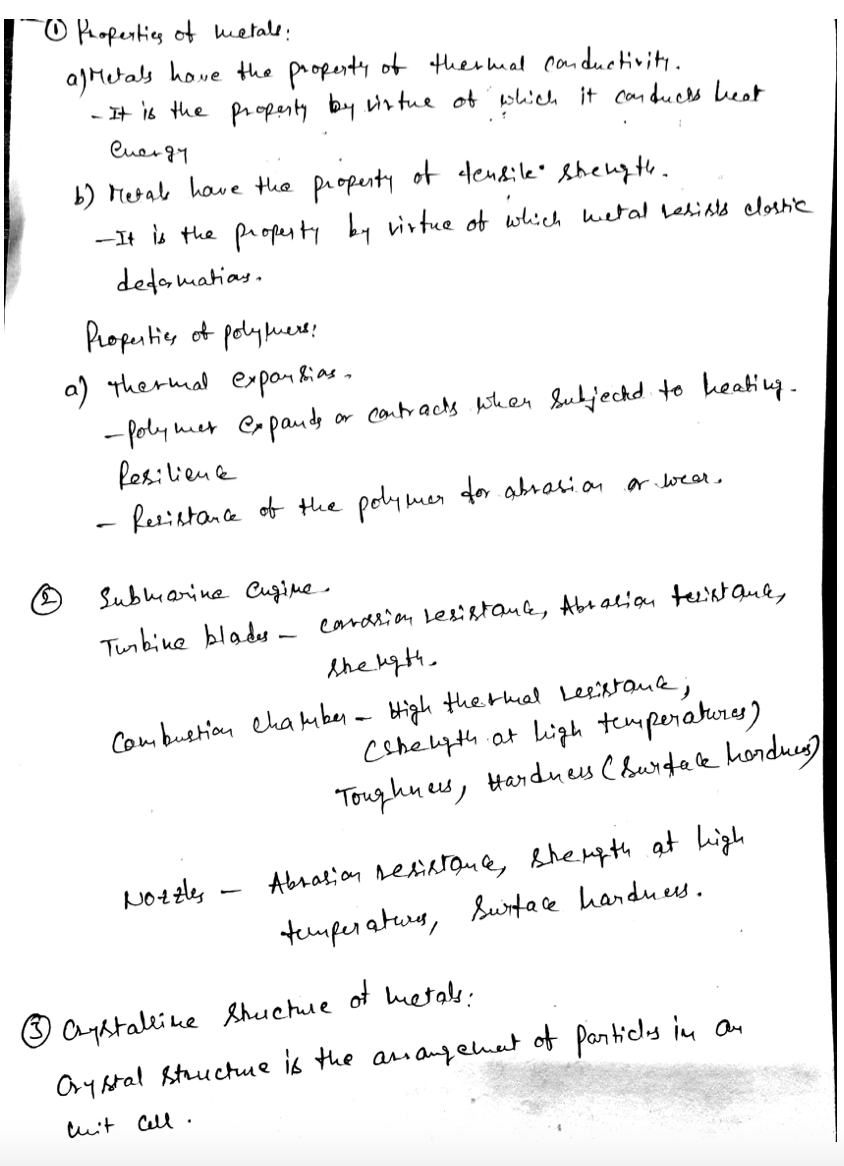 ① Properties of metals:
a) Metals have the property of thermal conductivity.
- It is the property by virtue of which it conducts heat
energy
b) Metals have the property of tensile strength.
- It is the property by virtue of which metal resists elastic
deformation.
Properties of polymers:
a) Thermal expansion.
- polymer expands or contracts when subjected to heating.
Resilience
- Resistance of the polymer for abrasion or wear.
② Submarine engine.
Turbine blades - corrosion resistance, Abrasion resistance,
strength.
Combustion chamber - High thermal resistance,
(strength at high temperatures)
Toughness, Hardness (surface hardness)
Nozzles - Abrasion resistance, strength at high
temperatures, surface hardness.
③ Crystalline structure of metals:
Crystal structure is the arrangement of particles in an
unit cell.